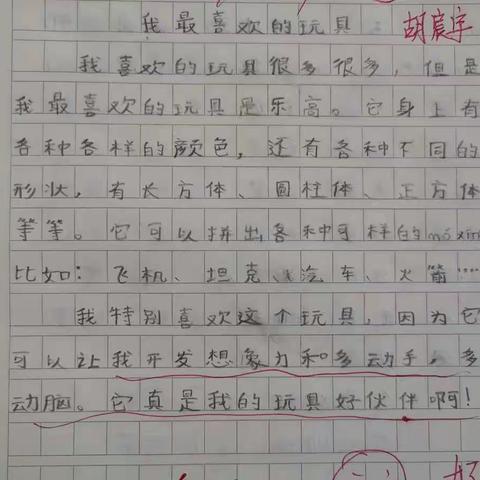 我最喜欢的玩具 胡宸宇
我喜欢的玩具很多很多，但是
我最喜欢的玩具是乐高。它身上有
各种各样的颜色，还有各种不同的
形状，有长方体、圆柱体、正方体
等等。它可以拼出各种可样的mó xíng
比如：飞机、坦克、汽车、火箭……
我特别喜欢这个玩具，因为它
可以让我开发想象力和多动手，多
动脑。它真是我的玩具好伙伴啊！